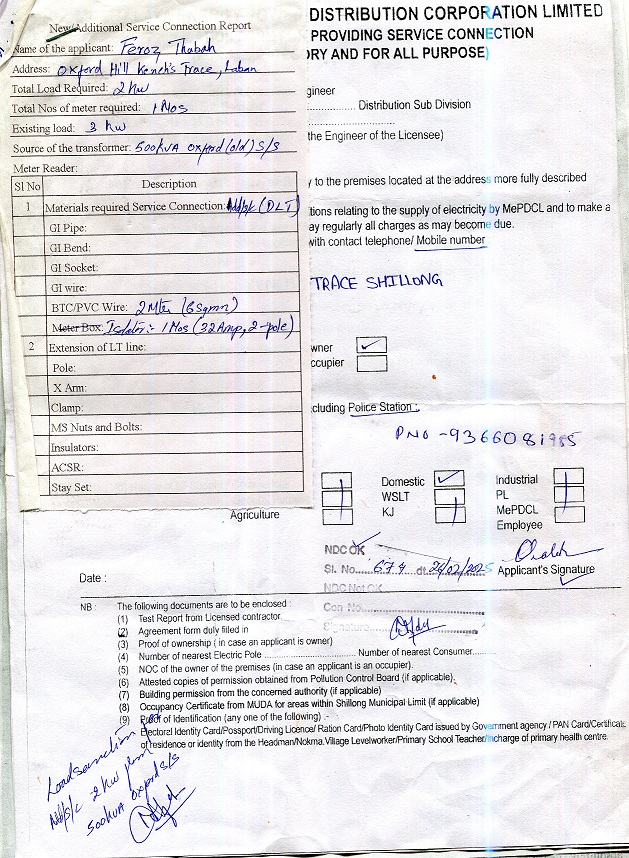 New/Additional Service Connection Report
Name of the applicant: Feroz Thabah
Address: Oxford Hill Kench's Trace, Laban
Total Load Required: 2 kw
Total Nos of meter required: 1 Nos
Existing load: 3 kw
Source of the transformer: 500kVA Oxford (old) S/S
Meter Reader:
Sl No Description
1 Materials required Service Connection: Add/s/c (DLT)
GI Pipe:
GI Bend:
GI Socket:
GI wire:
BTC/PVC Wire: 2 Mter (6Sqmm)
Meter Box: Isolator:- 1 Nos (32Amp, 2-pole)
2 Extension of LT line:
Pole:
X Arm:
Clamp:
MS Nuts and Bolts:
Insulators:
ACSR:
Stay Set:
DISTRIBUTION CORPORATION LIMITED
PROVIDING SERVICE CONNECTION
RY AND FOR ALL PURPOSE)
gineer
Distribution Sub Division
the Engineer of the Licensee)
y to the premises located at the address more fully described
tions relating to the supply of electricity by MePDCL and to make a
ay regularly all charges as may become due.
with contact telephone/ Mobile number
TRACE SHILLONG
wner
ccupier
cluding Police Station :
PNO -9366081985
Domestic Industrial
WSLT PL
Agriculture KJ MePDCL
Employee
NDC OK
Sl. No. 674 dt 24/02/2025 Applicant's Signature
NDC Not OK
Date : Con No.
Signature
NB : The following documents are to be enclosed :
(1) Test Report from Licensed contractor
(2) Agreement form duly filled in
(3) Proof of ownership ( in case an applicant is owner)
(4) Number of nearest Electric Pole ........................ Number of nearest Consumer......
(5) NOC of the owner of the premises (in case an applicant is an occupier).
(6) Attested copies of permission obtained from Pollution Control Board (if applicable).
(7) Building permission from the concerned authority (if applicable)
(8) Occupancy Certificate from MUDA for areas within Shillong Municipal Limit (if applicable)
(9) Proof of Identification (any one of the following) :-
Electoral Identity Card/Possport/Driving Licence/ Ration Card/Photo Identity Card issued by Government agency / PAN Card/Certificate
of residence or identity from the Headman/Nokma.Village Levelworker/Primary School Teacher/Incharge of primary health centre.
Load sanction for
Add/s/c 2 kw from
500kVA Oxford S/S